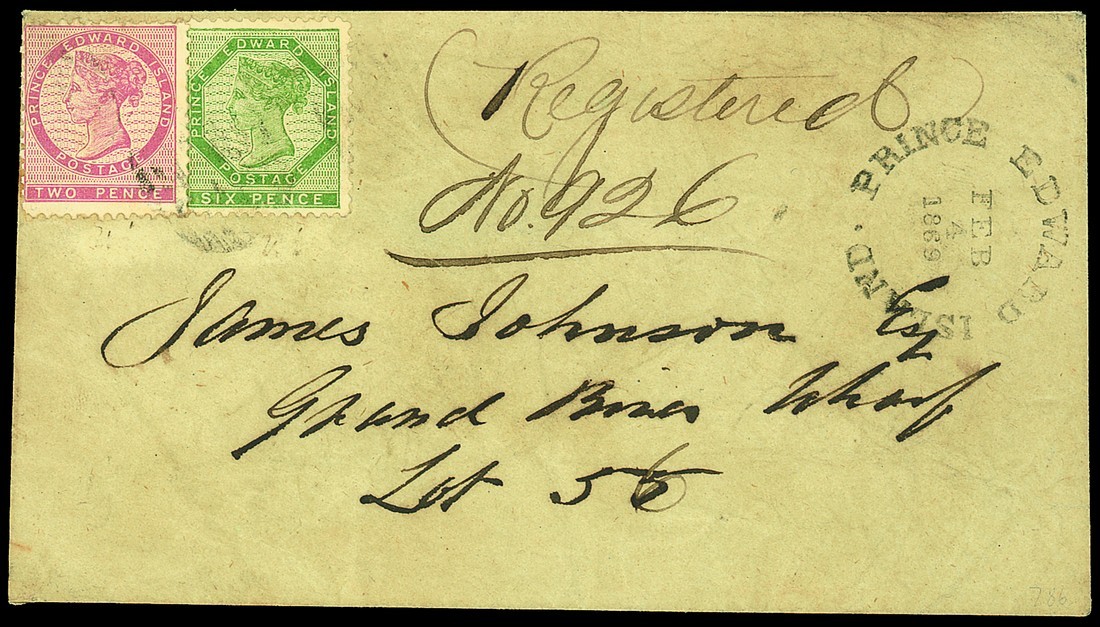 PRINCE EDWARD ISLAND
POSTAGE
TWO PENCE
PRINCE EDWARD ISLAND
POSTAGE
SIX PENCE
Registered
No. 926
PRINCE EDWARD ISLAND.
FEB
4
1869
James Johnson Esq
Grand River Wharf
Lot 56
786